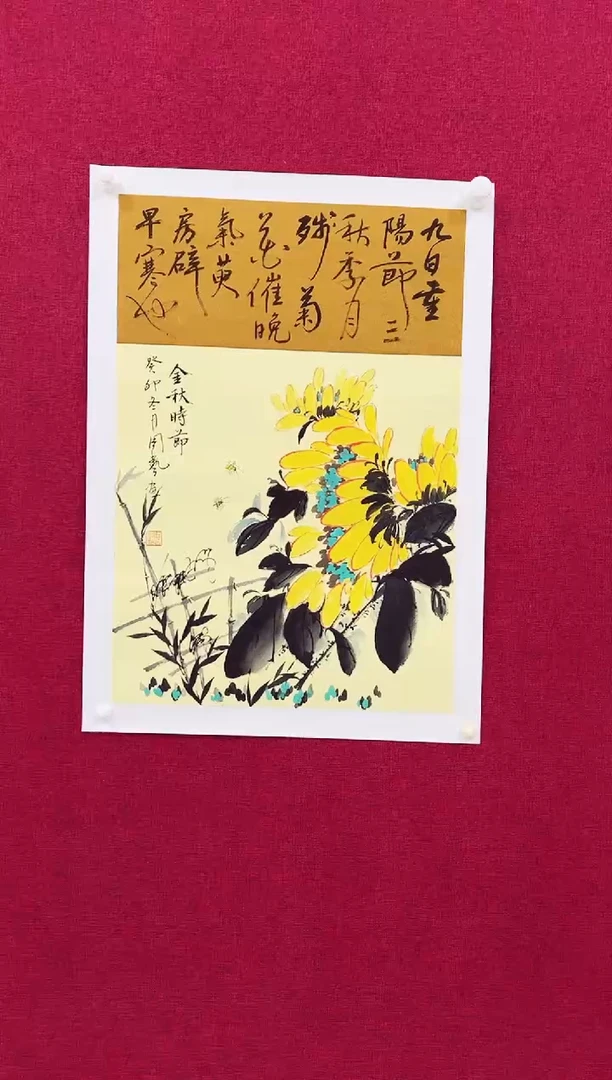 九日重
陽節三
秋季月
残菊
花催晚
氣萸
房辟
早寒
金秋時節
癸卯冬月